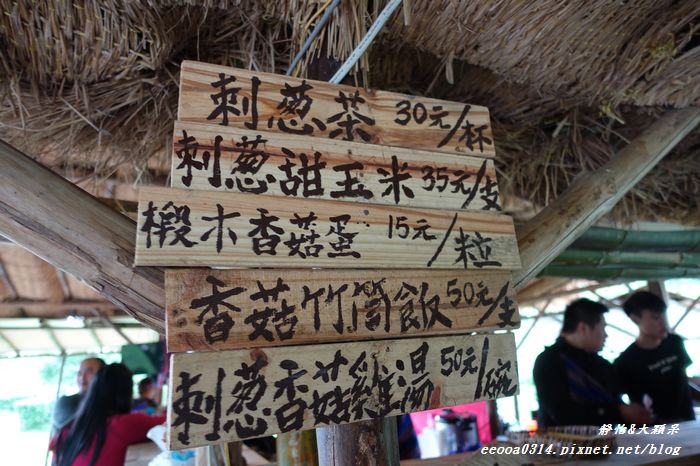 刺葱茶 30元/杯
刺葱甜玉米 35元/支
椴木香菇蛋 15元/粒
香菇竹筒飯 50元/支
刺葱香菇雞湯 50元/碗
靜怡&大顆呆
eeooa0314.pixnet.net/blog